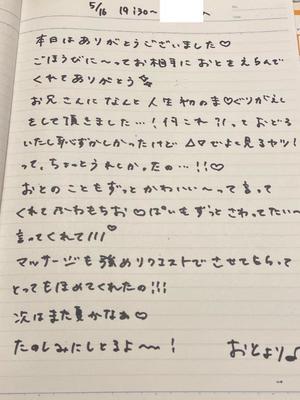 5/16 19:30〜
本日はありがとうございました♡
ごほうびに〜ってお相手におとをえらんで
くれてありがとう
お兄さんになんと人生初のま♡ぐりがえし
をして頂きました…!何これ?!っておどろ
いたし恥ずかしかったけど △▽でよく見るヤツ!
って、ちょっとうれしかったの…!!♡
おとのこともずっとかわいい〜って言って
くれてふわもちお♡ぱいもずっとさわってたい〜
言ってくれて!!!♡
マッサージも強めリクエストでさせてもらって
とってもほめてくれたの!!!
次はまた夏かなぁ♡
たのしみにしとるよ〜〜!
おとより♪